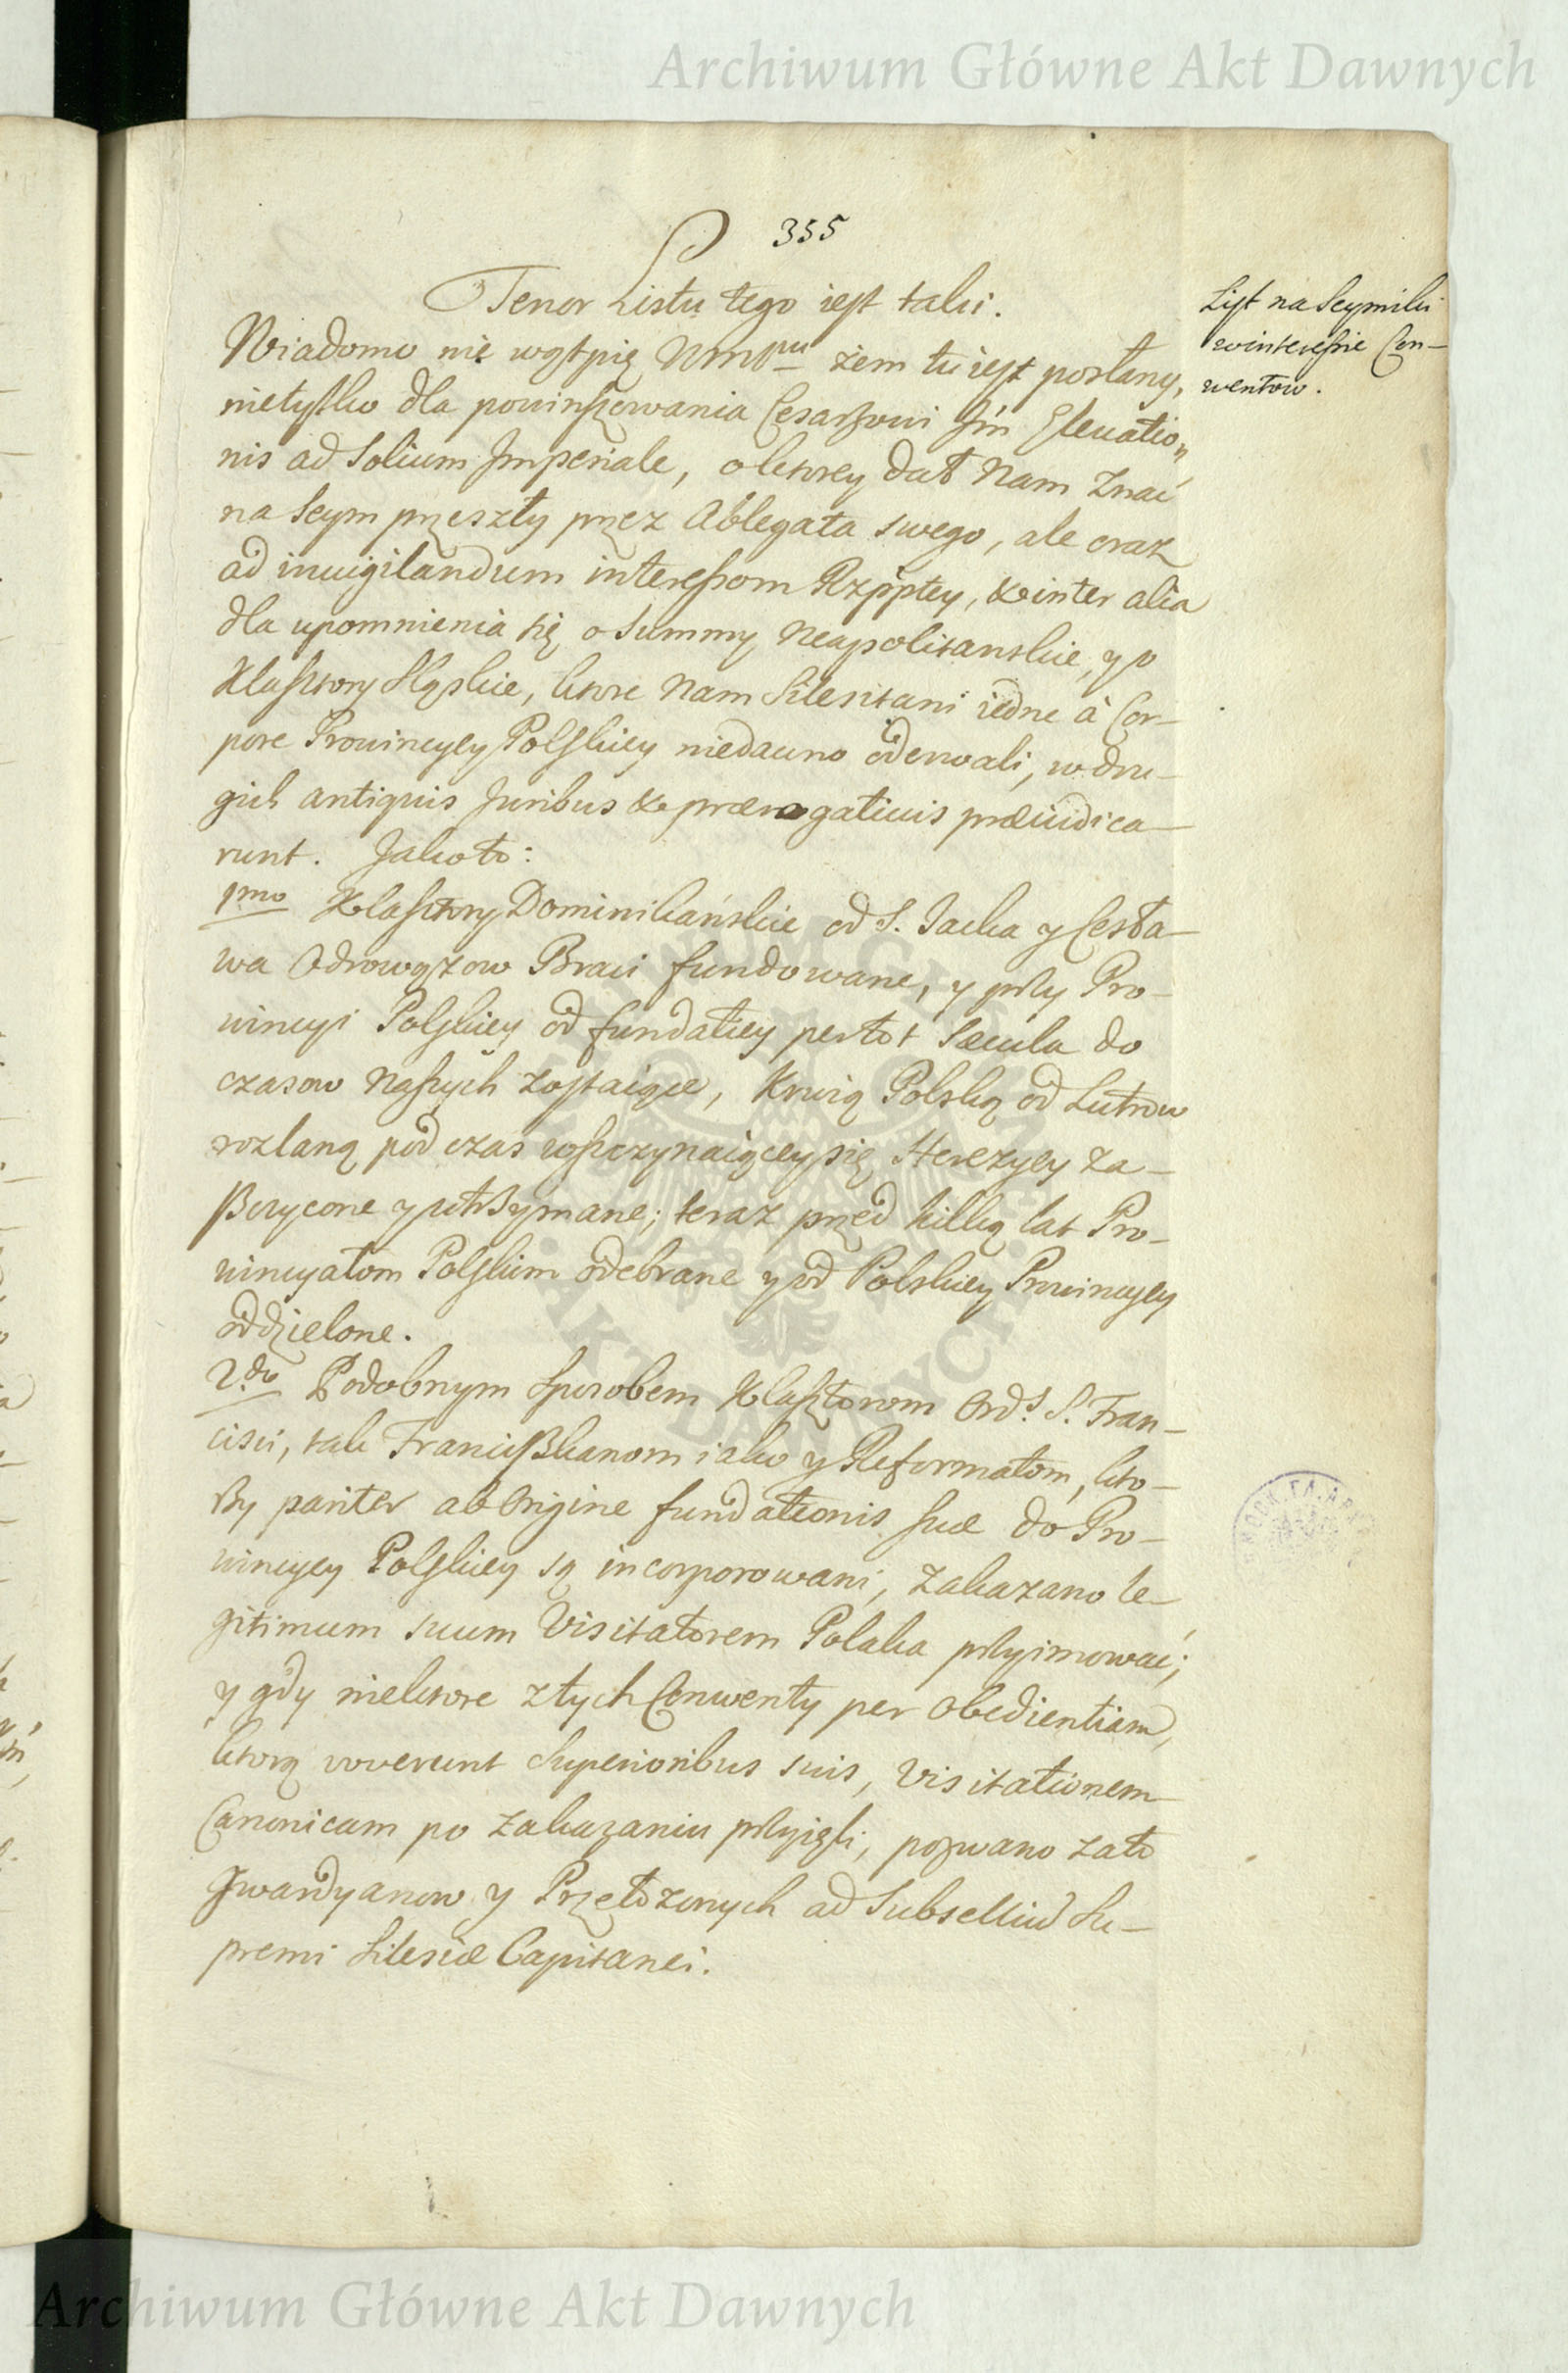 Archiwum Główne Akt Dawnych
355
Tenor Listu tego iest taki.
List na Seymiki
w interessie Con-
wentow.
Wiadomo nie wątpię WmPnu żem tu iest posłany,
nietylko dla powinszowania Cesarzowi Jm Eleuatio,,
nis ad Solium Imperiale, o ktorey dał Nam Znać
na Seym przeszły przez Ablegata swego, ale oraz
ad inuigilandum interessom Rzpptey, & inter alia
dla upomnienia się o Summy Neapolitanskie, y o
Klasztory Sląskie, ktore Nam Silesitani iedne à Cor-
pore Prowincyey Polskiey niedawno oderwali, w dru-
gich antiquis Juribus & prærogatiuis præiudica-
runt. Jakoto:
1mo Klasztory Dominikańskie od S. Jacka y Cesła-
wa Odrowązow Braci fundowane, y przy Pro-
wincyi Polskiey od fundatiey per tot Sæcula do
czasow Naszych zostaiące, Krwią Polską od Lutrow
rozlaną pod czas wszczynaiącey się Herezyey za-
szczycone y utrzymane; teraz przed kilką lat Pro-
wincyałom Polskim odebrane y od Polskiey Prowincyey
oddzielone.
2do Podobnym Sposobem Klasztorom Ords S. Fran-
cisci, tak Franciszkanom iako y Reformatom, kto-
rzy pariter ab Origine fundationis suæ do Pro-
wincyey Polskiey są incorporowani, Zakazano le-
gitimum suum Visitatorem Polaka przyimować;
y gdy niektore z tych Conwenty per obedientiam,
ktorą voverunt Superioribus suis, Visitationem
Canonicam po Zakazaniu przyięli, pozwano zato
Gwardyanow y Przełozonych ad Subselliũ Su-
premi Silesiæ Capitanei.
Archiwum Główne Akt Dawnych